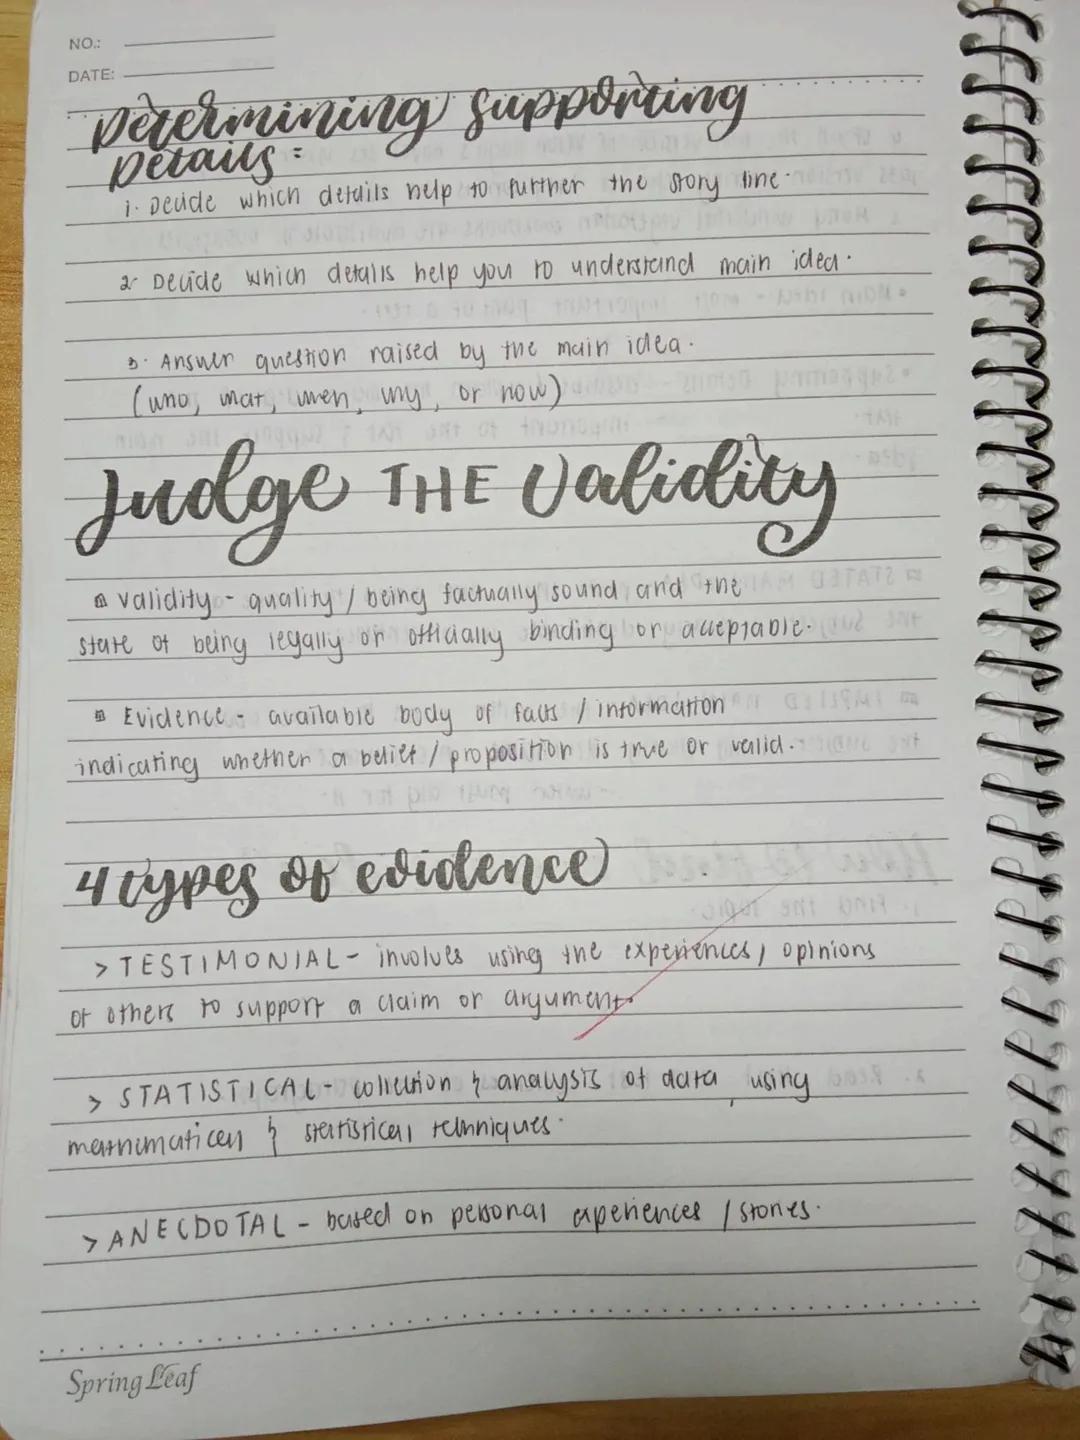 NO.:
DATE:
Determining supporting
Details:
1. Decide which details help to further the story line.
2. Decide which details help you to understand main idea.
3. Answer question raised by the main idea.
(who, what, when, why, or how)
Judge THE Validity
validity - quality / being factually sound and the
state of being legally or officially binding or acceptable.
Evidence - available body of facts / information
indicating whether a belief / proposition is true or valid.
4 types of evidence
> TESTIMONIAL - involves using the experiences, opinions
of others to support a claim or argument.
> STATISTICAL - collection & analysis of data, using
mathematical & statistical techniques.
> ANECDOTAL - based on personal experiences / stories.
Spring Leaf